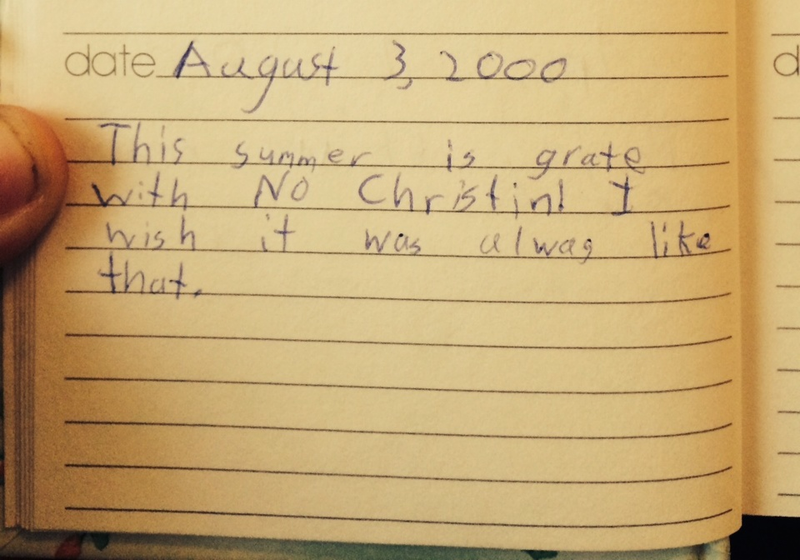 date August 3, 2000
d
This summer is grate
with No Christin! I
wish it was alway like
that.